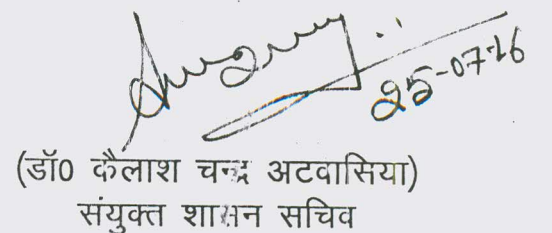 25-07-16
(डॉ0 कैलाश चन्द्र अटवासिया)
संयुक्त शासन सचिव